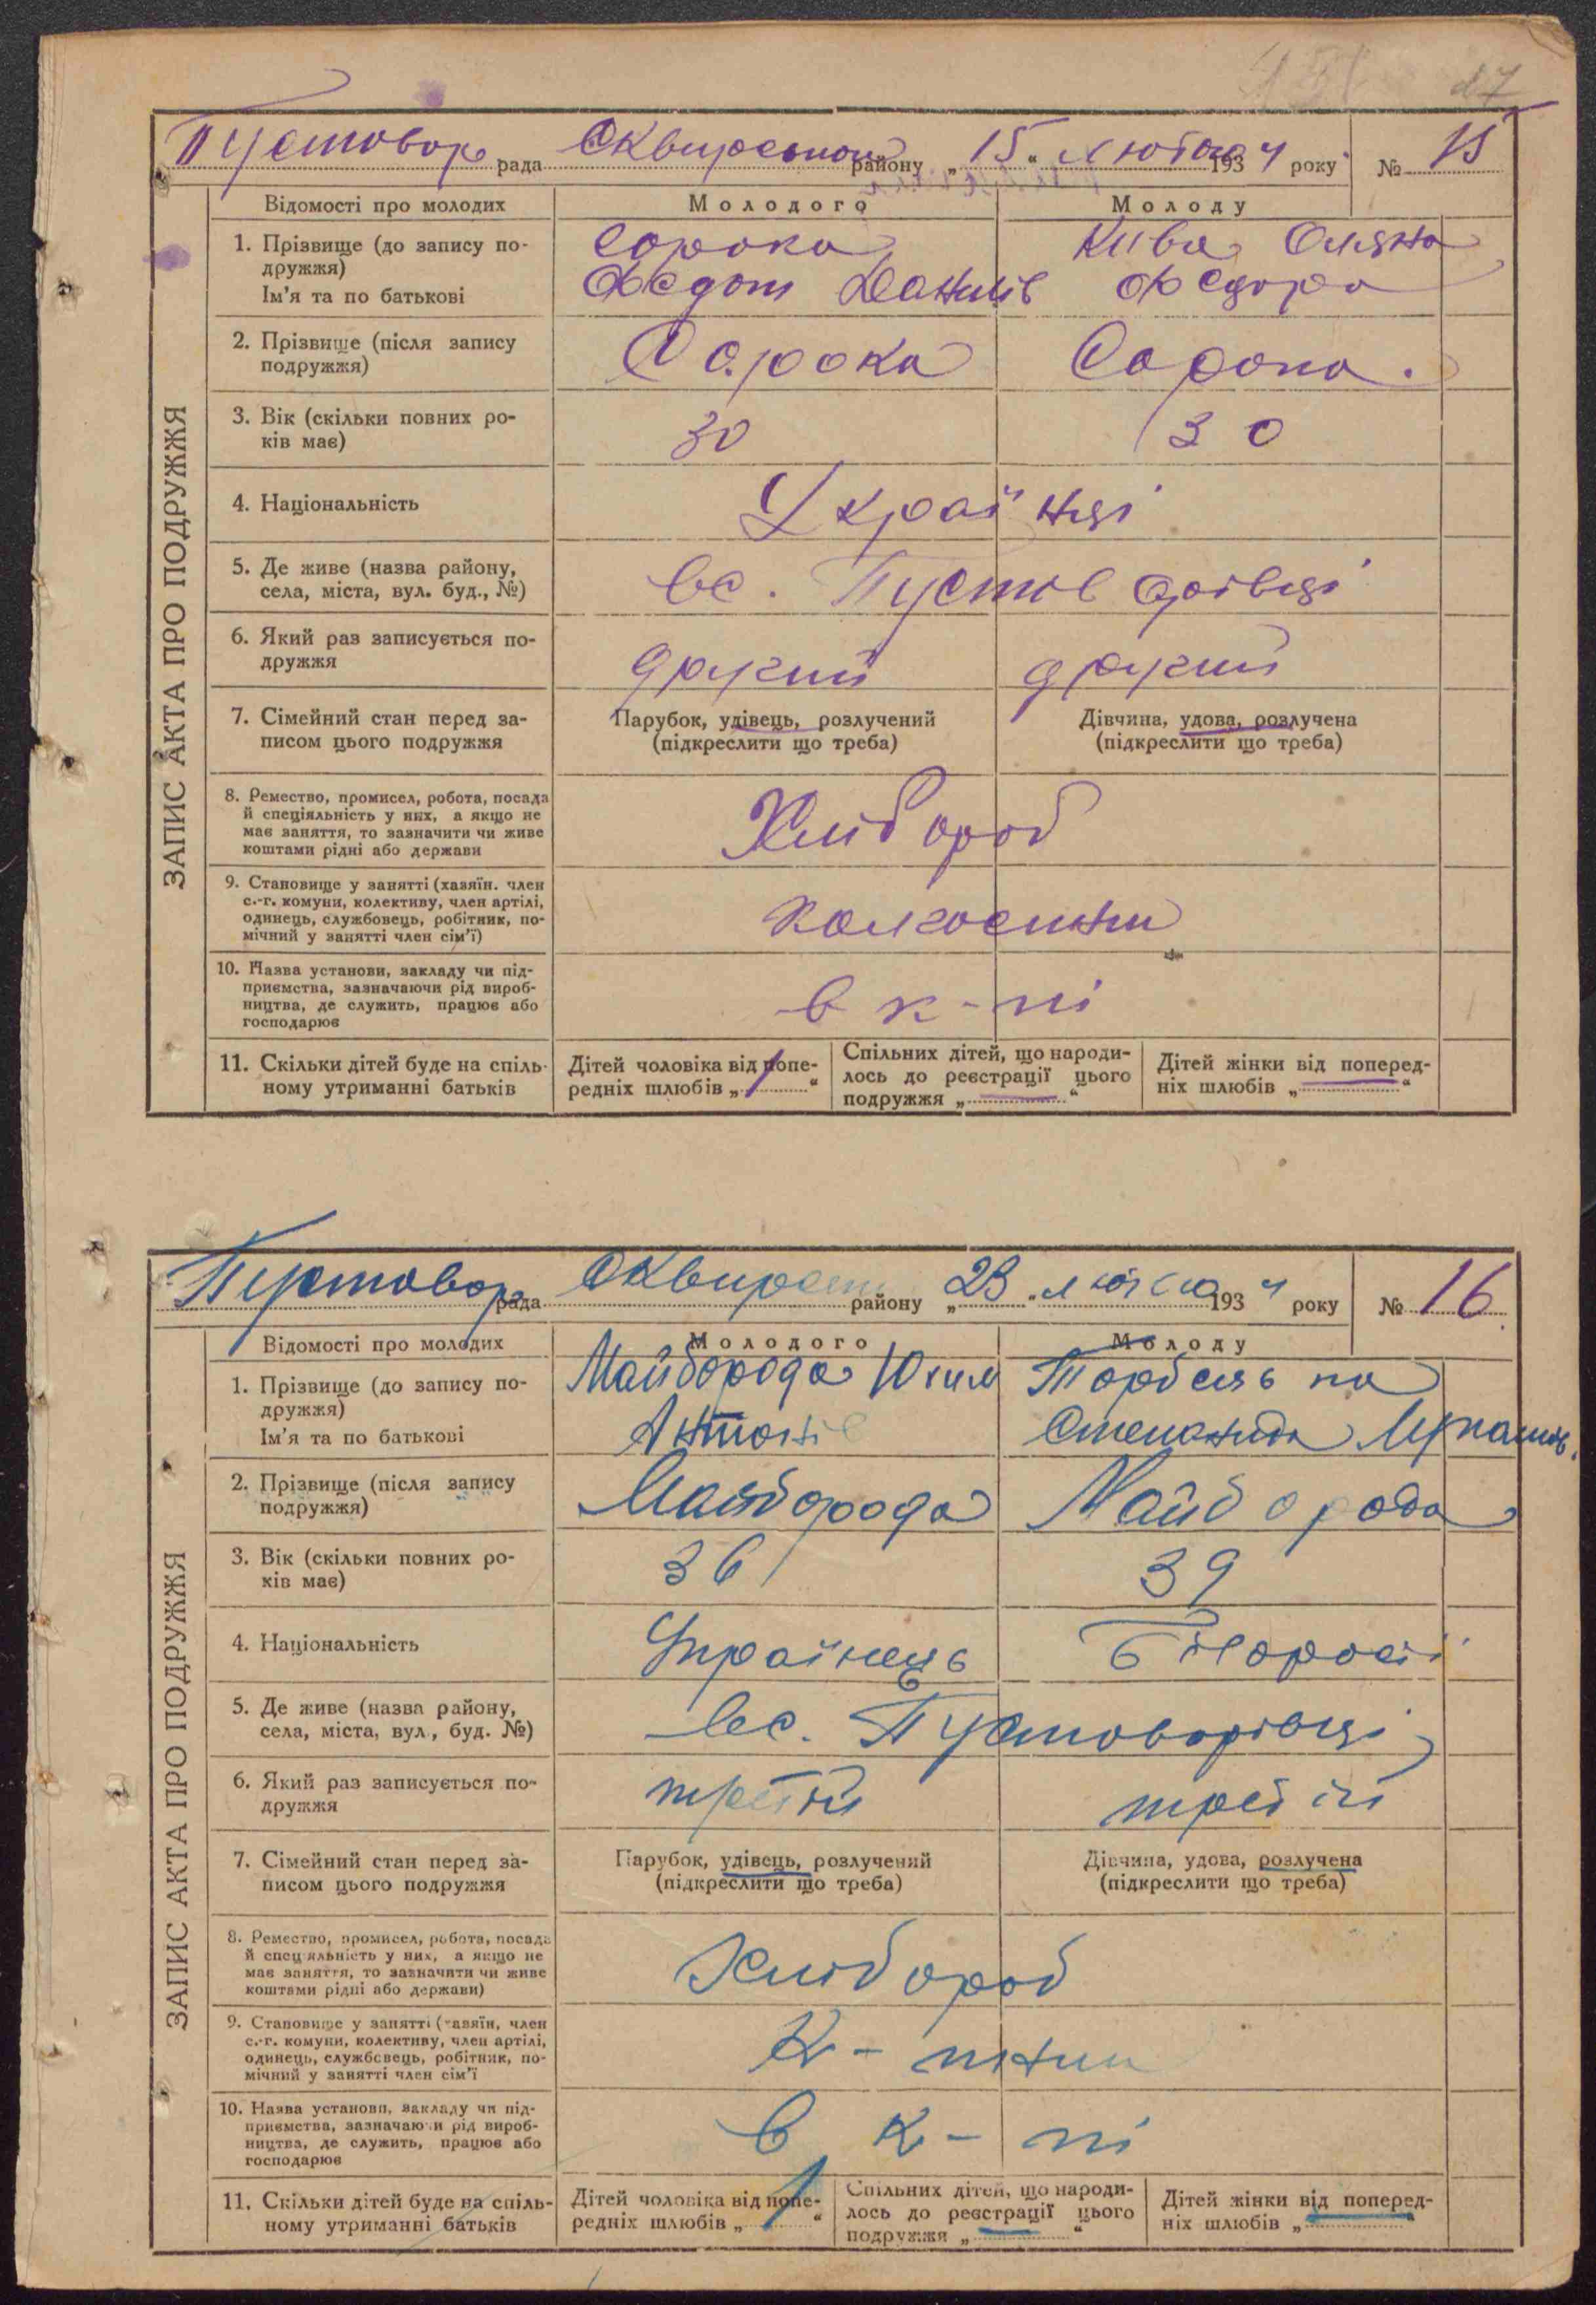 27
Пустовор рада Сквирського району „ 15 “ лютого 1934 року № 15
Відомості про молодих Молодого Молоду
1. Прізвище (до запису по- Сорока Кива Оляна
дружжя)
Ім'я та по батькові Федот Данилів Федора
2. Прізвище (після запису Сорока Сорока.
подружжя)
3. Вік (скільки повних ро- 30 30
ків має)
4. Національність Українці
5. Де живе (назва району, в с. Пустоворівці
села, міста, вул. буд., №)
6. Який раз записується по- другий другий
дружжя
7. Сімейний стан перед за- Парубок, удівець, розлучений Дівчина, удова, розлучена
писом цього подружжя (підкреслити що треба) (підкреслити що треба)
8. Ремество, промисел, робота, посада Хлібороб
й спеціяльність у них, а якщо не
має заняття, то зазначити чи живе
коштами рідні або держави
9. Становище у занятті (хазяїн. член
с.-г. комуни, колективу, член артілі, колгоспни
одинець, службовець, робітник, по-
мічний у занятті член сім'ї)
10. Назва установи, закладу чи під-
приємства, зазначаючи рід вироб- в к-пі
ництва, де служить, працює або
господарює
11. Скільки дітей буде на спіль- Дітей чоловіка від попе- Спільних дітей, що народи- Дітей жінки від поперед-
ному утриманні батьків редніх шлюбів „ 1 “ лось до реєстрації цього ніх шлюбів „ — “
подружжя „ — “
ЗАПИС АКТА ПРО ПОДРУЖЖЯ
Пустовор рада Сквирськ району „ 23 “ лютого 1934 року № 16
Відомості про молодих Молодого Молоду
1. Прізвище (до запису по- Майборода Юхим
дружжя)
Ім'я та по батькові Антонів Степанида Лукашів.
2. Прізвище (після запису Майборода Майборода
подружжя)
3. Вік (скільки повних ро- 36 39
ків має)
4. Національність Українець
5. Де живе (назва району, в с. Пустоворівці
села, міста, вул., буд. №)
6. Який раз записується по- третій третій
дружжя
7. Сімейний стан перед за- Парубок, удівець, розлучений Дівчина, удова, розлучена
писом цього подружжя (підкреслити що треба) (підкреслити що треба)
8. Ремество, промисел, робота, посада Хлібороб
й спеціяльність у них, а якщо не
має заняття, то зазначити чи живе
коштами рідні або держави)
9. Становище у занятті (хазяїн, член
с.-г. комуни, колективу, член артілі, К-пники
одинець, службовець, робітник, по-
мічний у занятті член сім'ї
10. Назва установи, закладу чи під-
приємства, зазначаючи рід вироб- в к-пі
ництва, де служить, працює або
господарює
11. Скільки дітей буде на спіль- Дітей чоловіка від попе- Спільних дітей, що народи- Дітей жінки від поперед-
ному утриманні батьків редніх шлюбів „ 1 “ лось до реєстрації цього ніх шлюбів „ — “
подружжя „ — “
ЗАПИС АКТА ПРО ПОДРУЖЖЯ